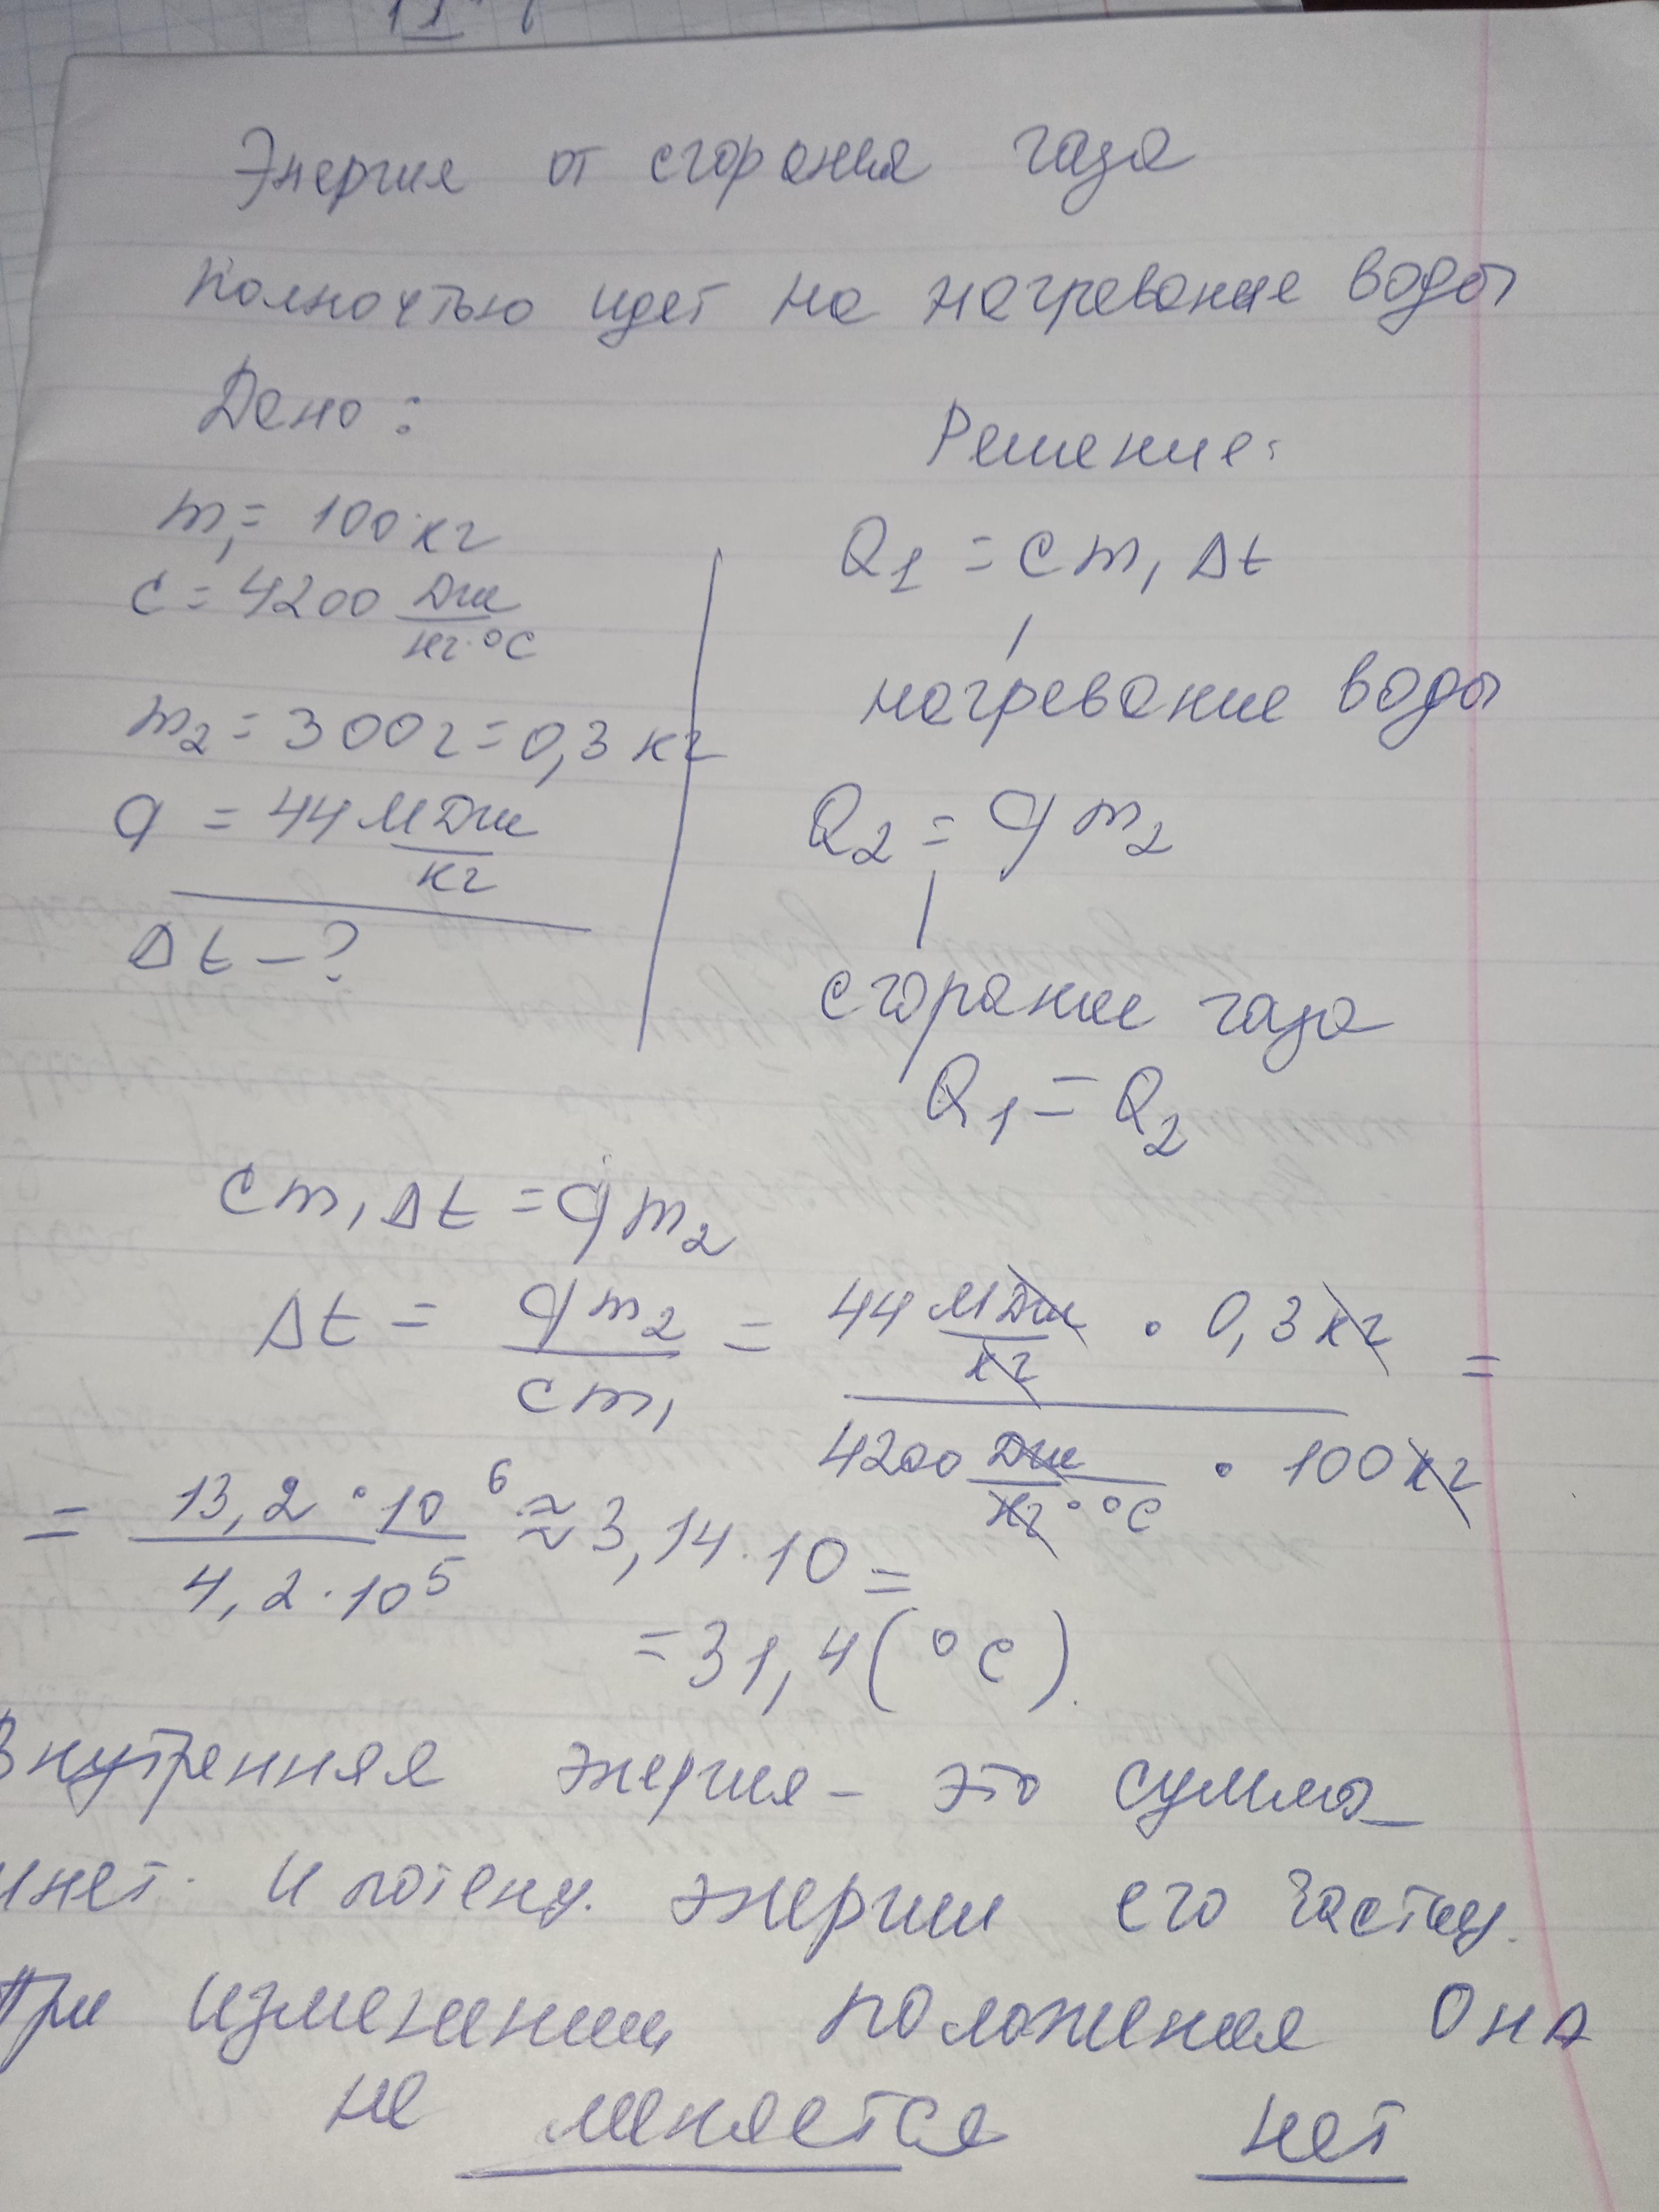 Энергия от сгорания газа
полностью идет на нагревание воды
Дано:
m₁ = 100 кг
c = 4200 Дж/кг·°C
m₂ = 300 г = 0,3 кг
q = 44 МДж/кг
Δt - ?
Решение:
Q₁ = cm₁Δt
нагревание воды
Q₂ = qm₂
сгорание газа
Q₁ = Q₂
cm₁Δt = qm₂
Δt = qm₂/cm₁ = 44 МДж/кг · 0,3 кг / 4200 Дж/кг·°C · 100 кг =
= 13,2·10⁶/4,2·10⁵ ≈ 3,14·10 =
= 31,4 (°C).
Внутренняя энергия - это сумма
кинет. и потенц. энергии его частиц.
При изменении положения она
не меняется нет